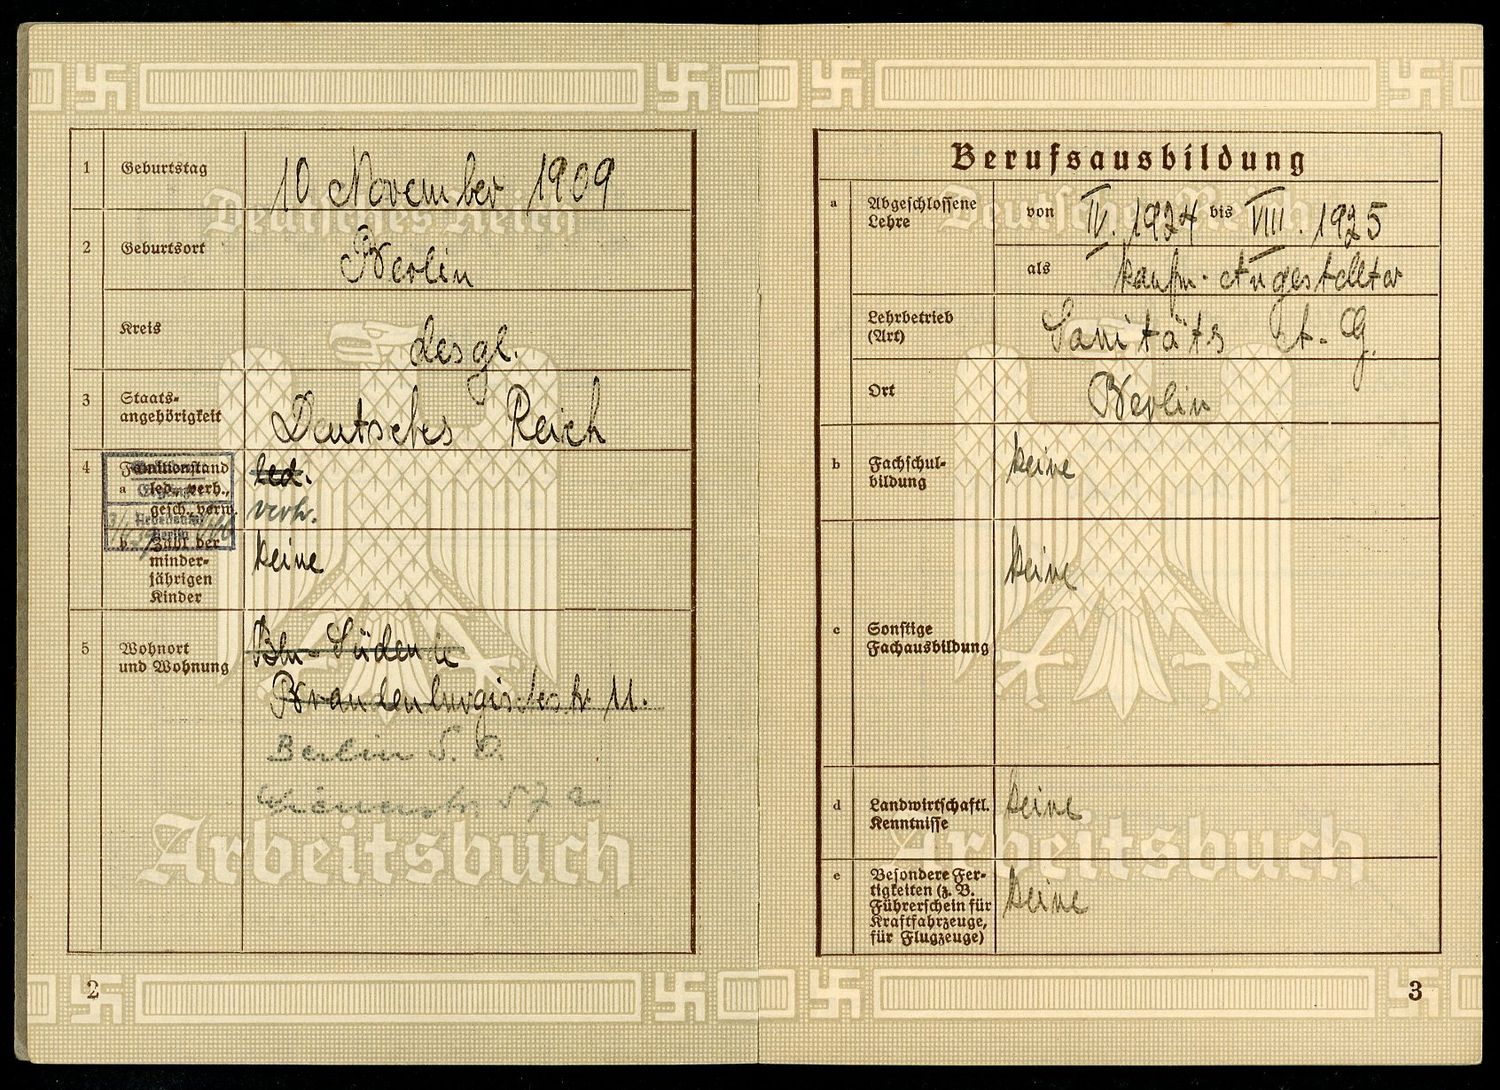 1 Geburtstag 10 November 1909
2 Geburtsort Berlin
Kreis desgl.
3 Staats-
angehörigkeit Deutsches Reich
4 Familienstand led.
a led., verh.,
gesch., verw. verh.
b Zahl der
minder-
jährigen
Kinder keine
5 Wohnort
und Wohnung Bln-Südende
Brandenburgischestr. 11.
Berlin S. O.
57 a
Deutsches Reich
Arbeitsbuch
2
Berufsausbildung
a Abgeschlossene
Lehre von IV. 1924 bis VIII. 1925
als kaufm. Angestellter
Lehrbetrieb
(Art) Sanitäts A. G.
Ort Berlin
b Fachschul-
bildung keine
c Sonstige
Fachausbildung keine
d Landwirtschaftl.
Kenntnisse keine
e Besondere Fer-
tigkeiten (z. B.
Führerschein für
Kraftfahrzeuge,
für Flugzeuge) keine
Deutsches Reich
Arbeitsbuch
3